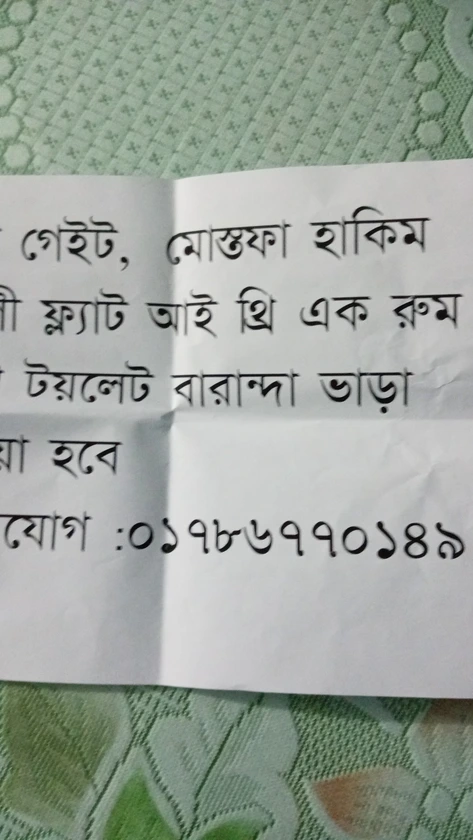 গেইট, মোস্তফা হাকিম
ফ্ল্যাট আই থ্রি এক রুম
টয়লেট বারান্দা ভাড়া
হবে
যোগ :০১৭৮৬৭৭০১৪৯